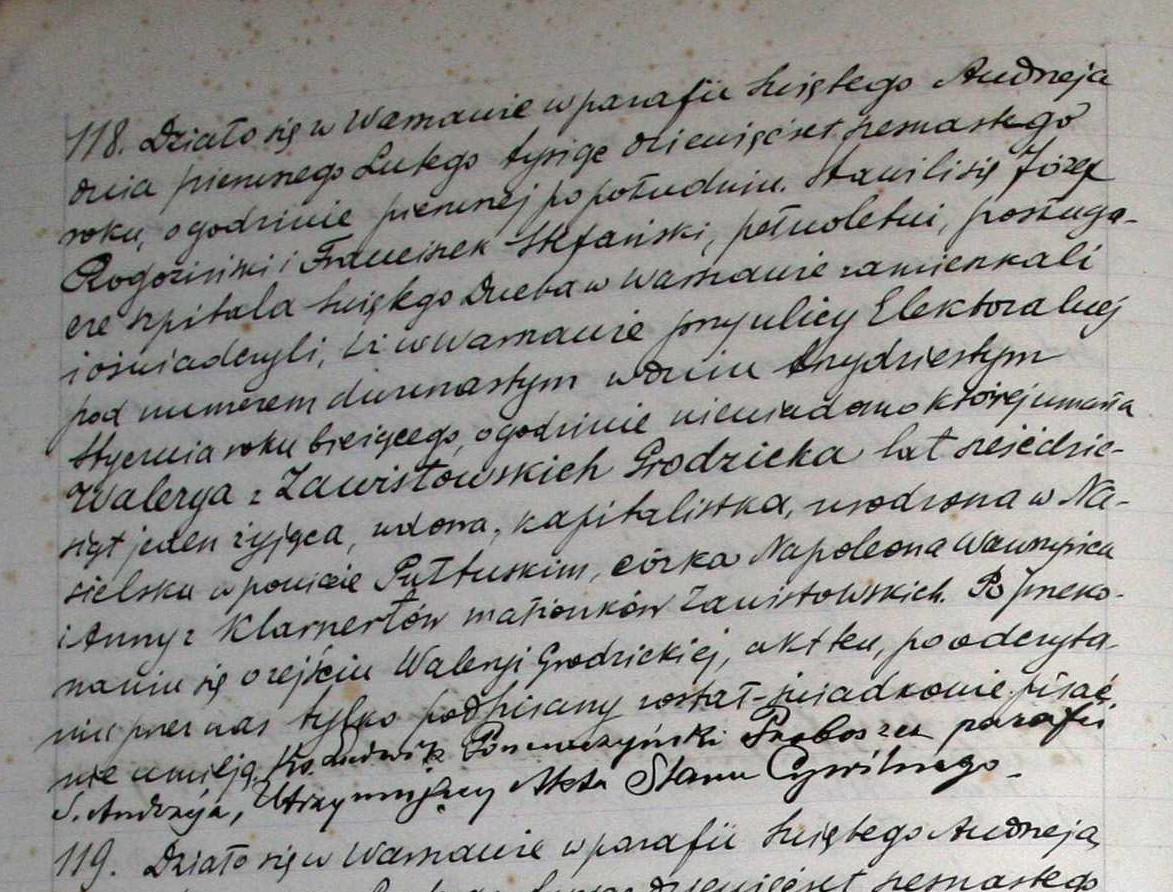 118. Działo się w Warszawie w parafii świętego Andrzeja
dnia pierwszego Lutego tysiąc dziewięćset szesnastego
roku, o godzinie pierwszej po południu. Stawili się Józef
Rogoziński i Franciszek Stefański, pełnoletni, posługa-
cze szpitala świętego Ducha w Warszawie zamieszkali
i oświadczyli, iż w Warszawie przy ulicy Elektoralnej
pod numerem dwunastym w dniu trzydziestym
Stycznia roku bieżącego, o godzinie niewiadomo której umarła
Walerya z Zawistowskich Grodzicka lat sześćdzie-
siąt jeden żyjąca, wdowa, kapitalistka, urodzona w Na-
sielsku w powiecie Pułtuskim, córka Napoleona Wawrzyńca
i Anny z Klarnertów małżonków Zawistowskich. Po przeko-
naniu się o zejściu Waleryi Grodzickiej, akt ten, po odczyta-
niu przez nas tylko podpisany został – świadkowie pisać
nie umieją. Ks. Ludwik Proboszcz parafii
S. Andrzeja, Utrzymujący Akta Stanu Cywilnego.
119. Działo się w Warszawie w parafii świętego Andrzeja,
dziewięćset szesnastego